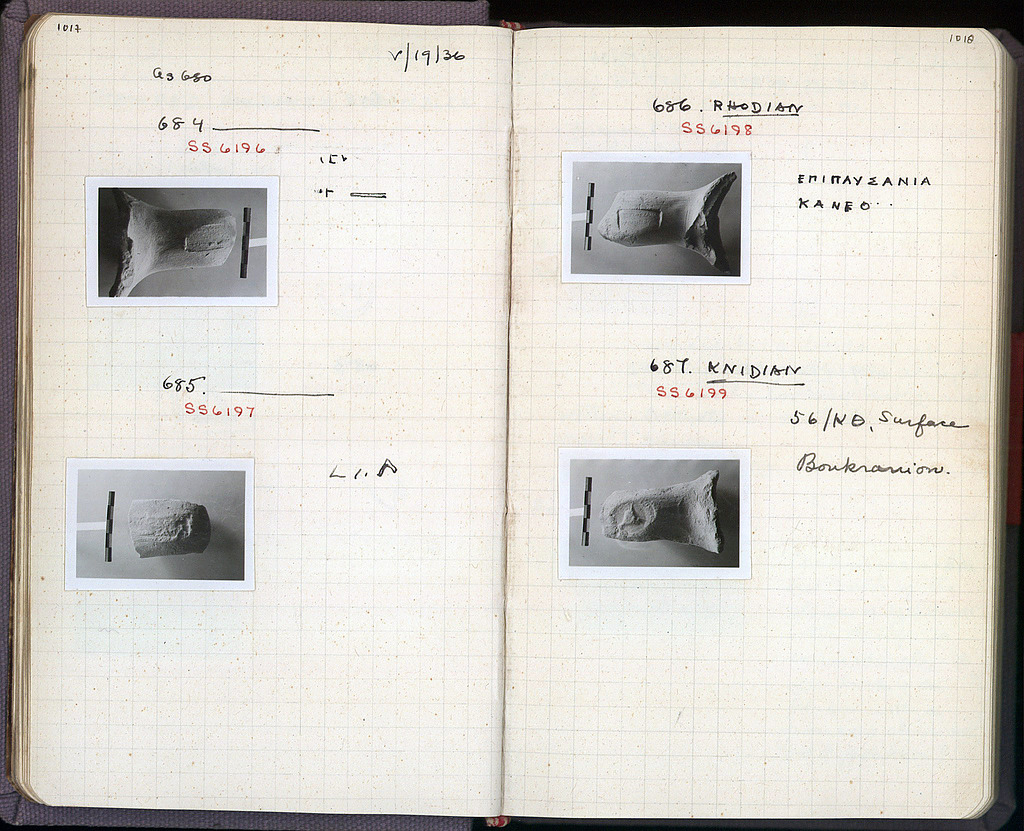 1017
V/19/36
as 680
684
SS 6196
685.
SS 6197
1018
686. RHODIAN
SS 6198
ΕΠΙΠΑΥΣΑΝΙΑ
ΚΑΝΕΟ··
687. KNIDIAN
SS 6199
56/ΚΘ, Surface
Boukranion.